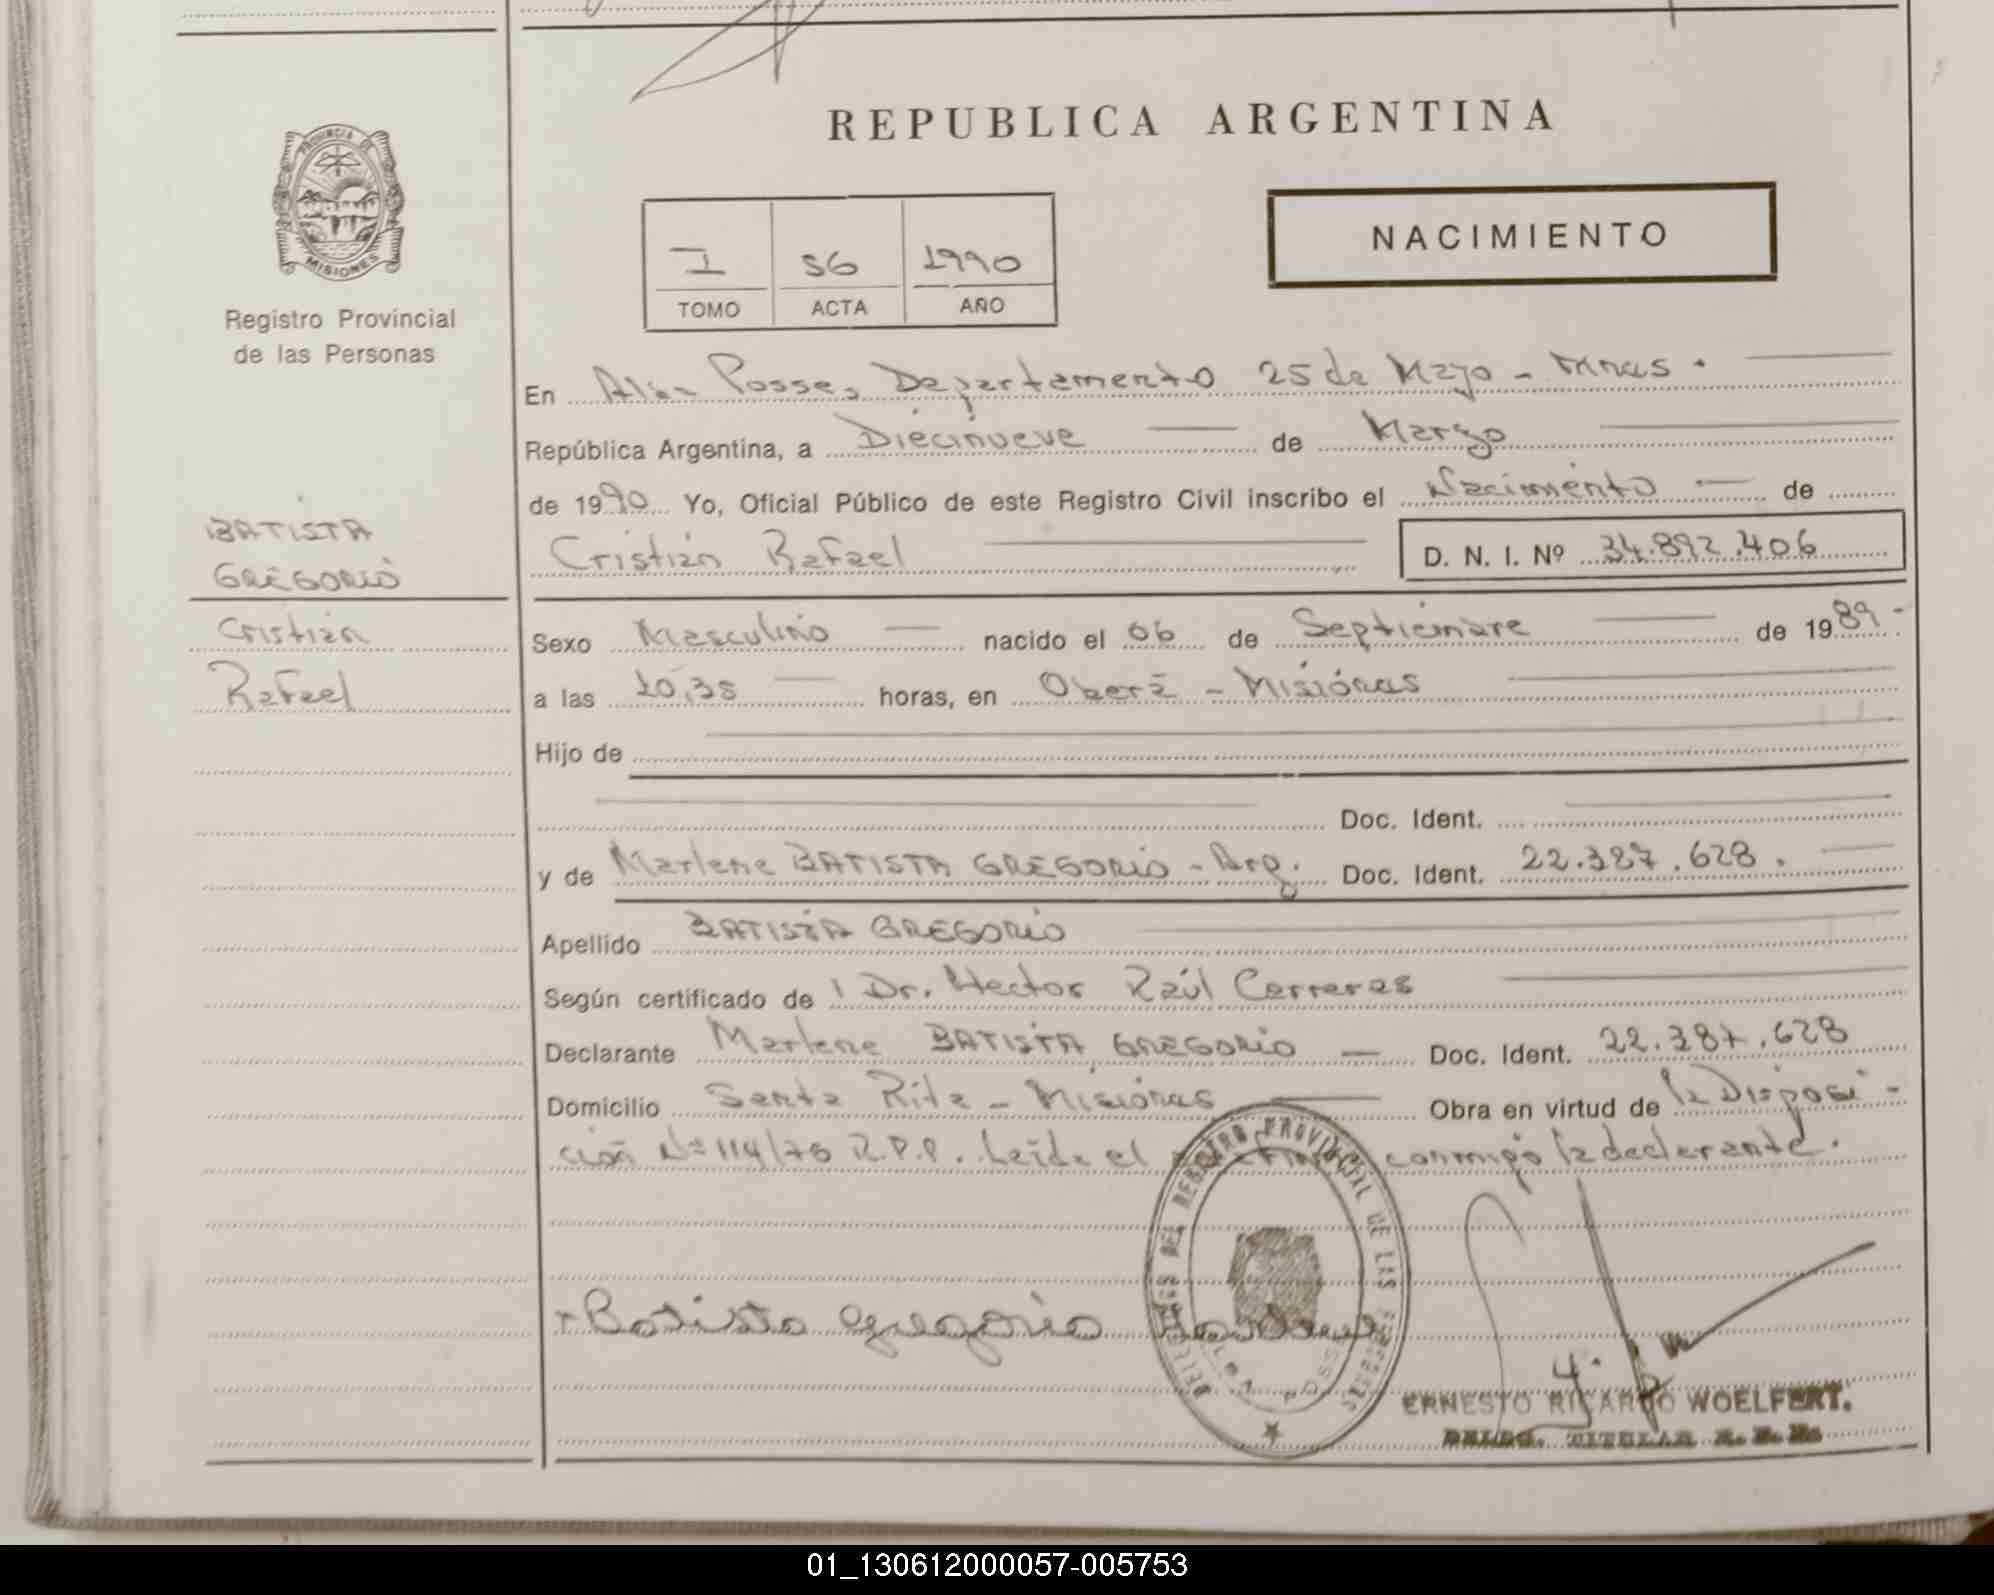 REPUBLICA ARGENTINA
PROVINCIA DE MISIONES
Registro Provincial
de las Personas
NACIMIENTO
I 56 1990
TOMO ACTA AÑO
En Alba Posse, Departamento 25 de Mayo - Mnes.
República Argentina, a Diecinueve de Marzo
de 1990 Yo, Oficial Público de este Registro Civil inscribo el Nacimiento de
Cristián Rafael D. N. I. Nº 34.892.406
BATISTA
GREGORIO
Cristián
Rafael
Sexo Masculino nacido el 06 de Septiembre de 1989-
a las 10,35 horas, en Oberá - Misiones
Hijo de
Doc. Ident.
y de Marlene BATISTA GREGORIO - Arg. Doc. Ident. 22.387.628.
Apellido BATISTA GREGORIO
Según certificado de Dr. Hector Raúl Carreras
Declarante Marlene BATISTA GREGORIO Doc. Ident. 22.387.628
Domicilio Santa Rita - Misiones Obra en virtud de la Disposi-
ción Nº 114/76 R.P.P. Leída el conmigo la declarante.
DEL REGISTRO PROVINCIAL DE LAS
ALBA POSSE
Batista Gregorio
ERNESTO RICARDO WOELFERT.
TITULAR
01_130612000057-005753